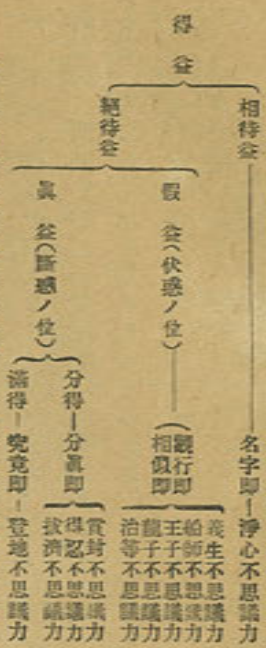 得益
相待益
名字即
淨心不思議力
絕待益
假益(伏惑ノ位)
觀行即
相似即
義生不思議力
船師不思議力
王子不思議力
龍子不思議力
治等不思議力
眞益(斷惑ノ位)
分得
分眞即
賞封不思議力
得忍不思議力
拔濟不思議力
滿得
究竟即
登地不思議力